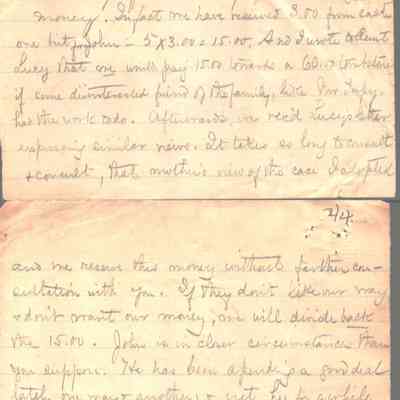 money. In fact we have received 3.00 from each
one but John - 5 x 3.00 = 15.00. And I wrote to Aunt
Lucy that we would pay 15.00 towards a 60.00 tombstone
if some disinterested friend of the family, like
has the work to do. Afterwards, we rec'd Lucy's letter
expressing similar views. It takes so long to consult
& consult, that mother's view of the case I adopted
2/4
and we reserve this money without farther con-
sultation with you. If they don't like our way
& don't want our money, we will divide back
the 15.00. John is in closer circumstances than
you suppose. He has been spending a good deal
one way & another, &